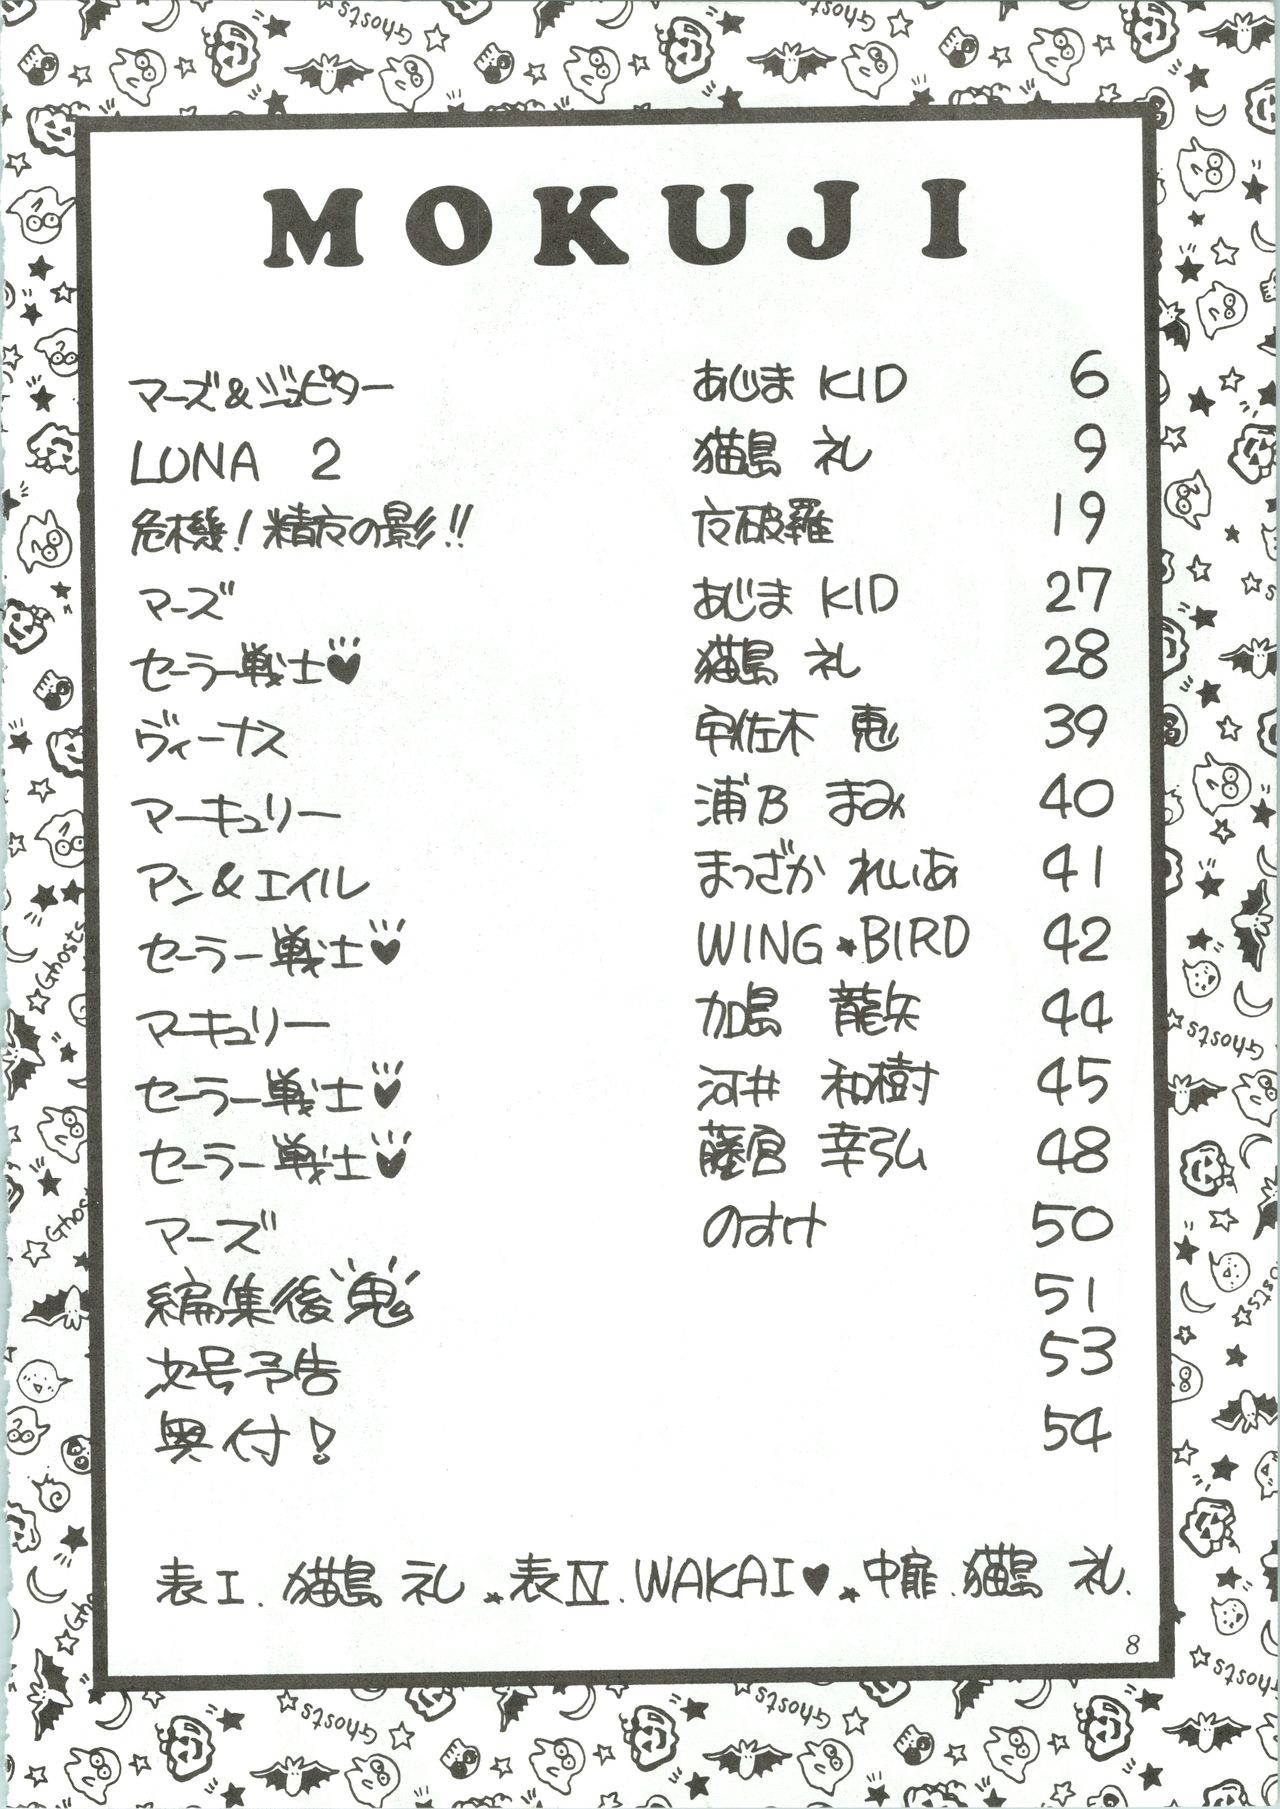 MOKUJI
マーズ&ジュピター あじま KID 6
LUNA 2 猫島 礼 9
危機!精方の影!! 夜破羅 19
マーズ あじま KID 27
セーラー戦士♥ 猫島 礼 28
ヴィーナス 宇佐木 恵 39
マーキュリー 浦乃 まみ 40
アン&エイル まつざか れいあ 41
セーラー戦士♥ WING★BIRD 42
マーキュリー 加島 龍矢 44
セーラー戦士♥ 河井 和樹 45
セーラー戦士♥ 藤宮 幸弘 48
マーズ のすけ 50
編集後鬼 51
次号予告 53
奥付! 54
表I. 猫島 礼 ★表IV. WAKAI♥ ★中扉. 猫島 礼.
8
Ghosts
Ghosts
Ghosts
Ghosts
Ghosts
Ghosts
Ghosts
Ghosts
Ghosts